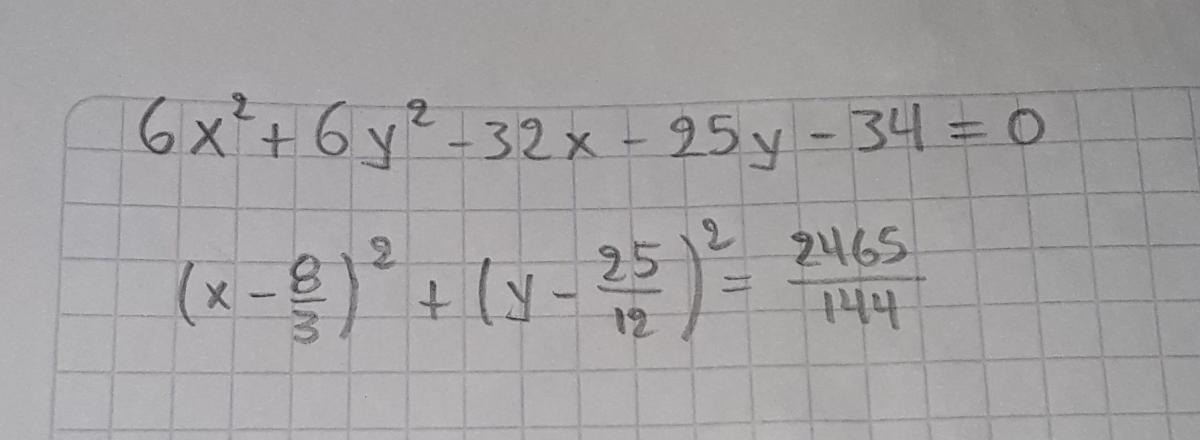 6x² + 6y² - 32x - 25y - 34 = 0
(x - 8/3)² + (y - 25/12)² = 2465/144